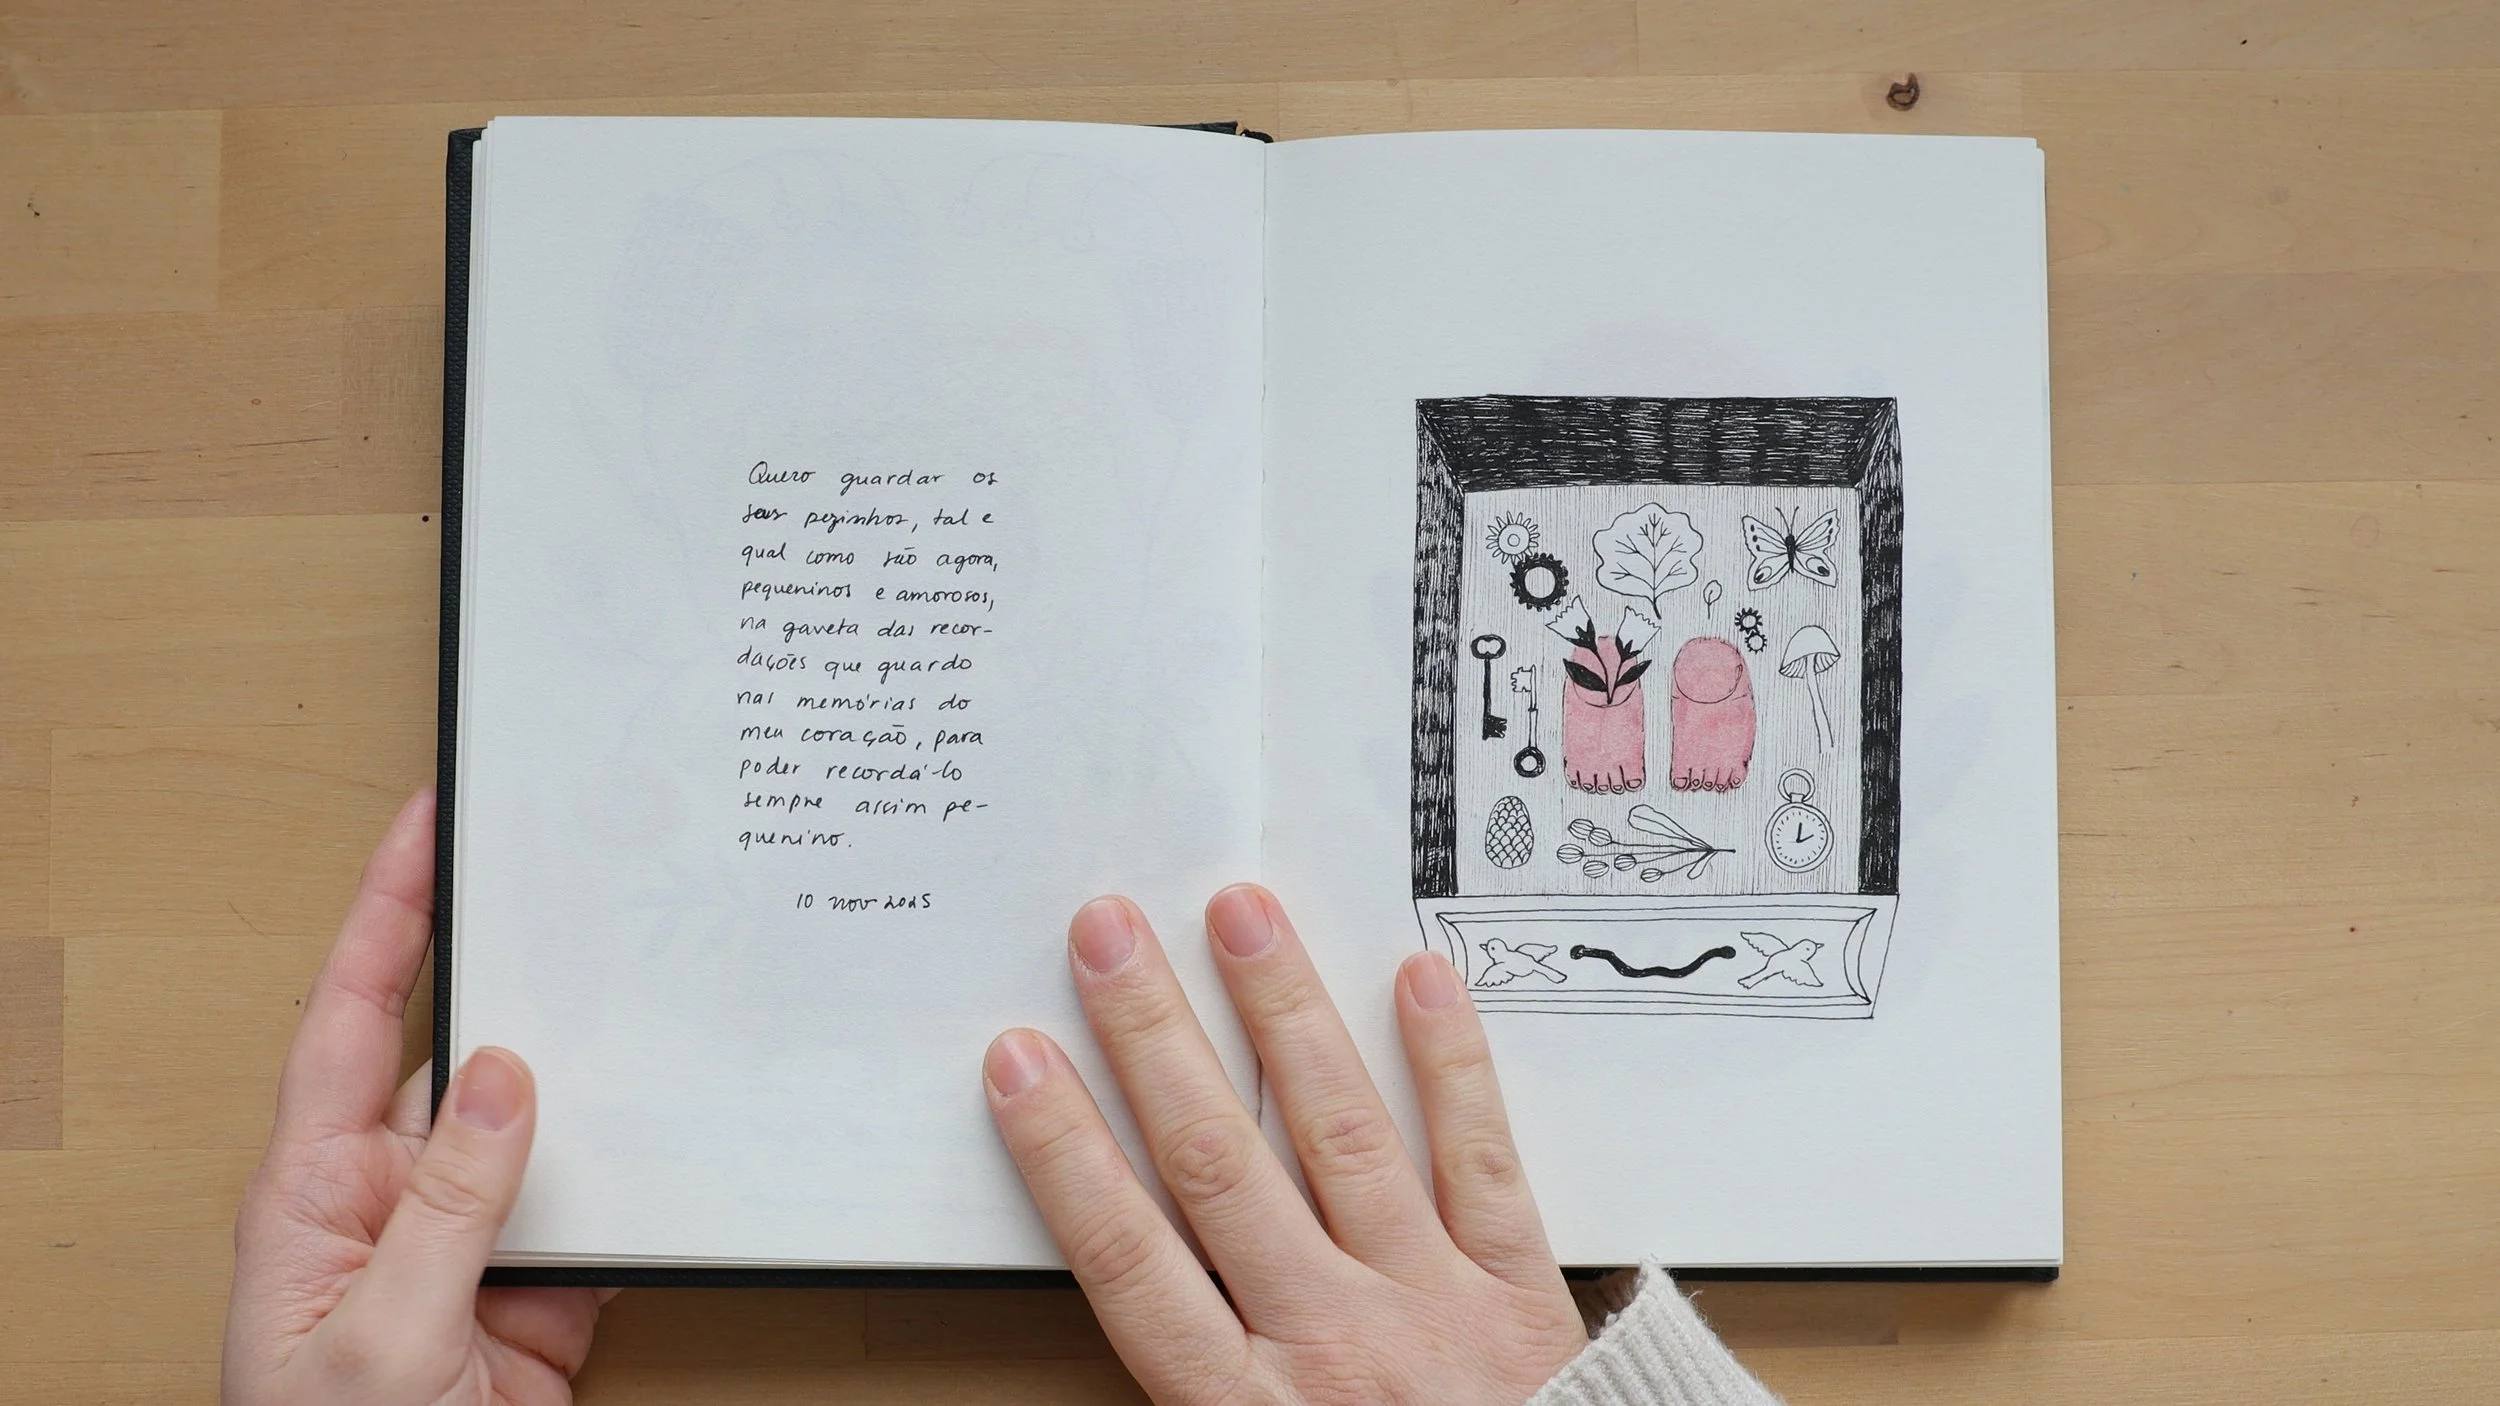 Quero guardar os
seus pezinhos, tal e
qual como são agora,
pequeninos e amorosos,
na gaveta das recor-
dações que guardo
nas memórias do
meu coração, para
poder recordá-lo
sempre assim pe-
quenino.
10 nov 2025